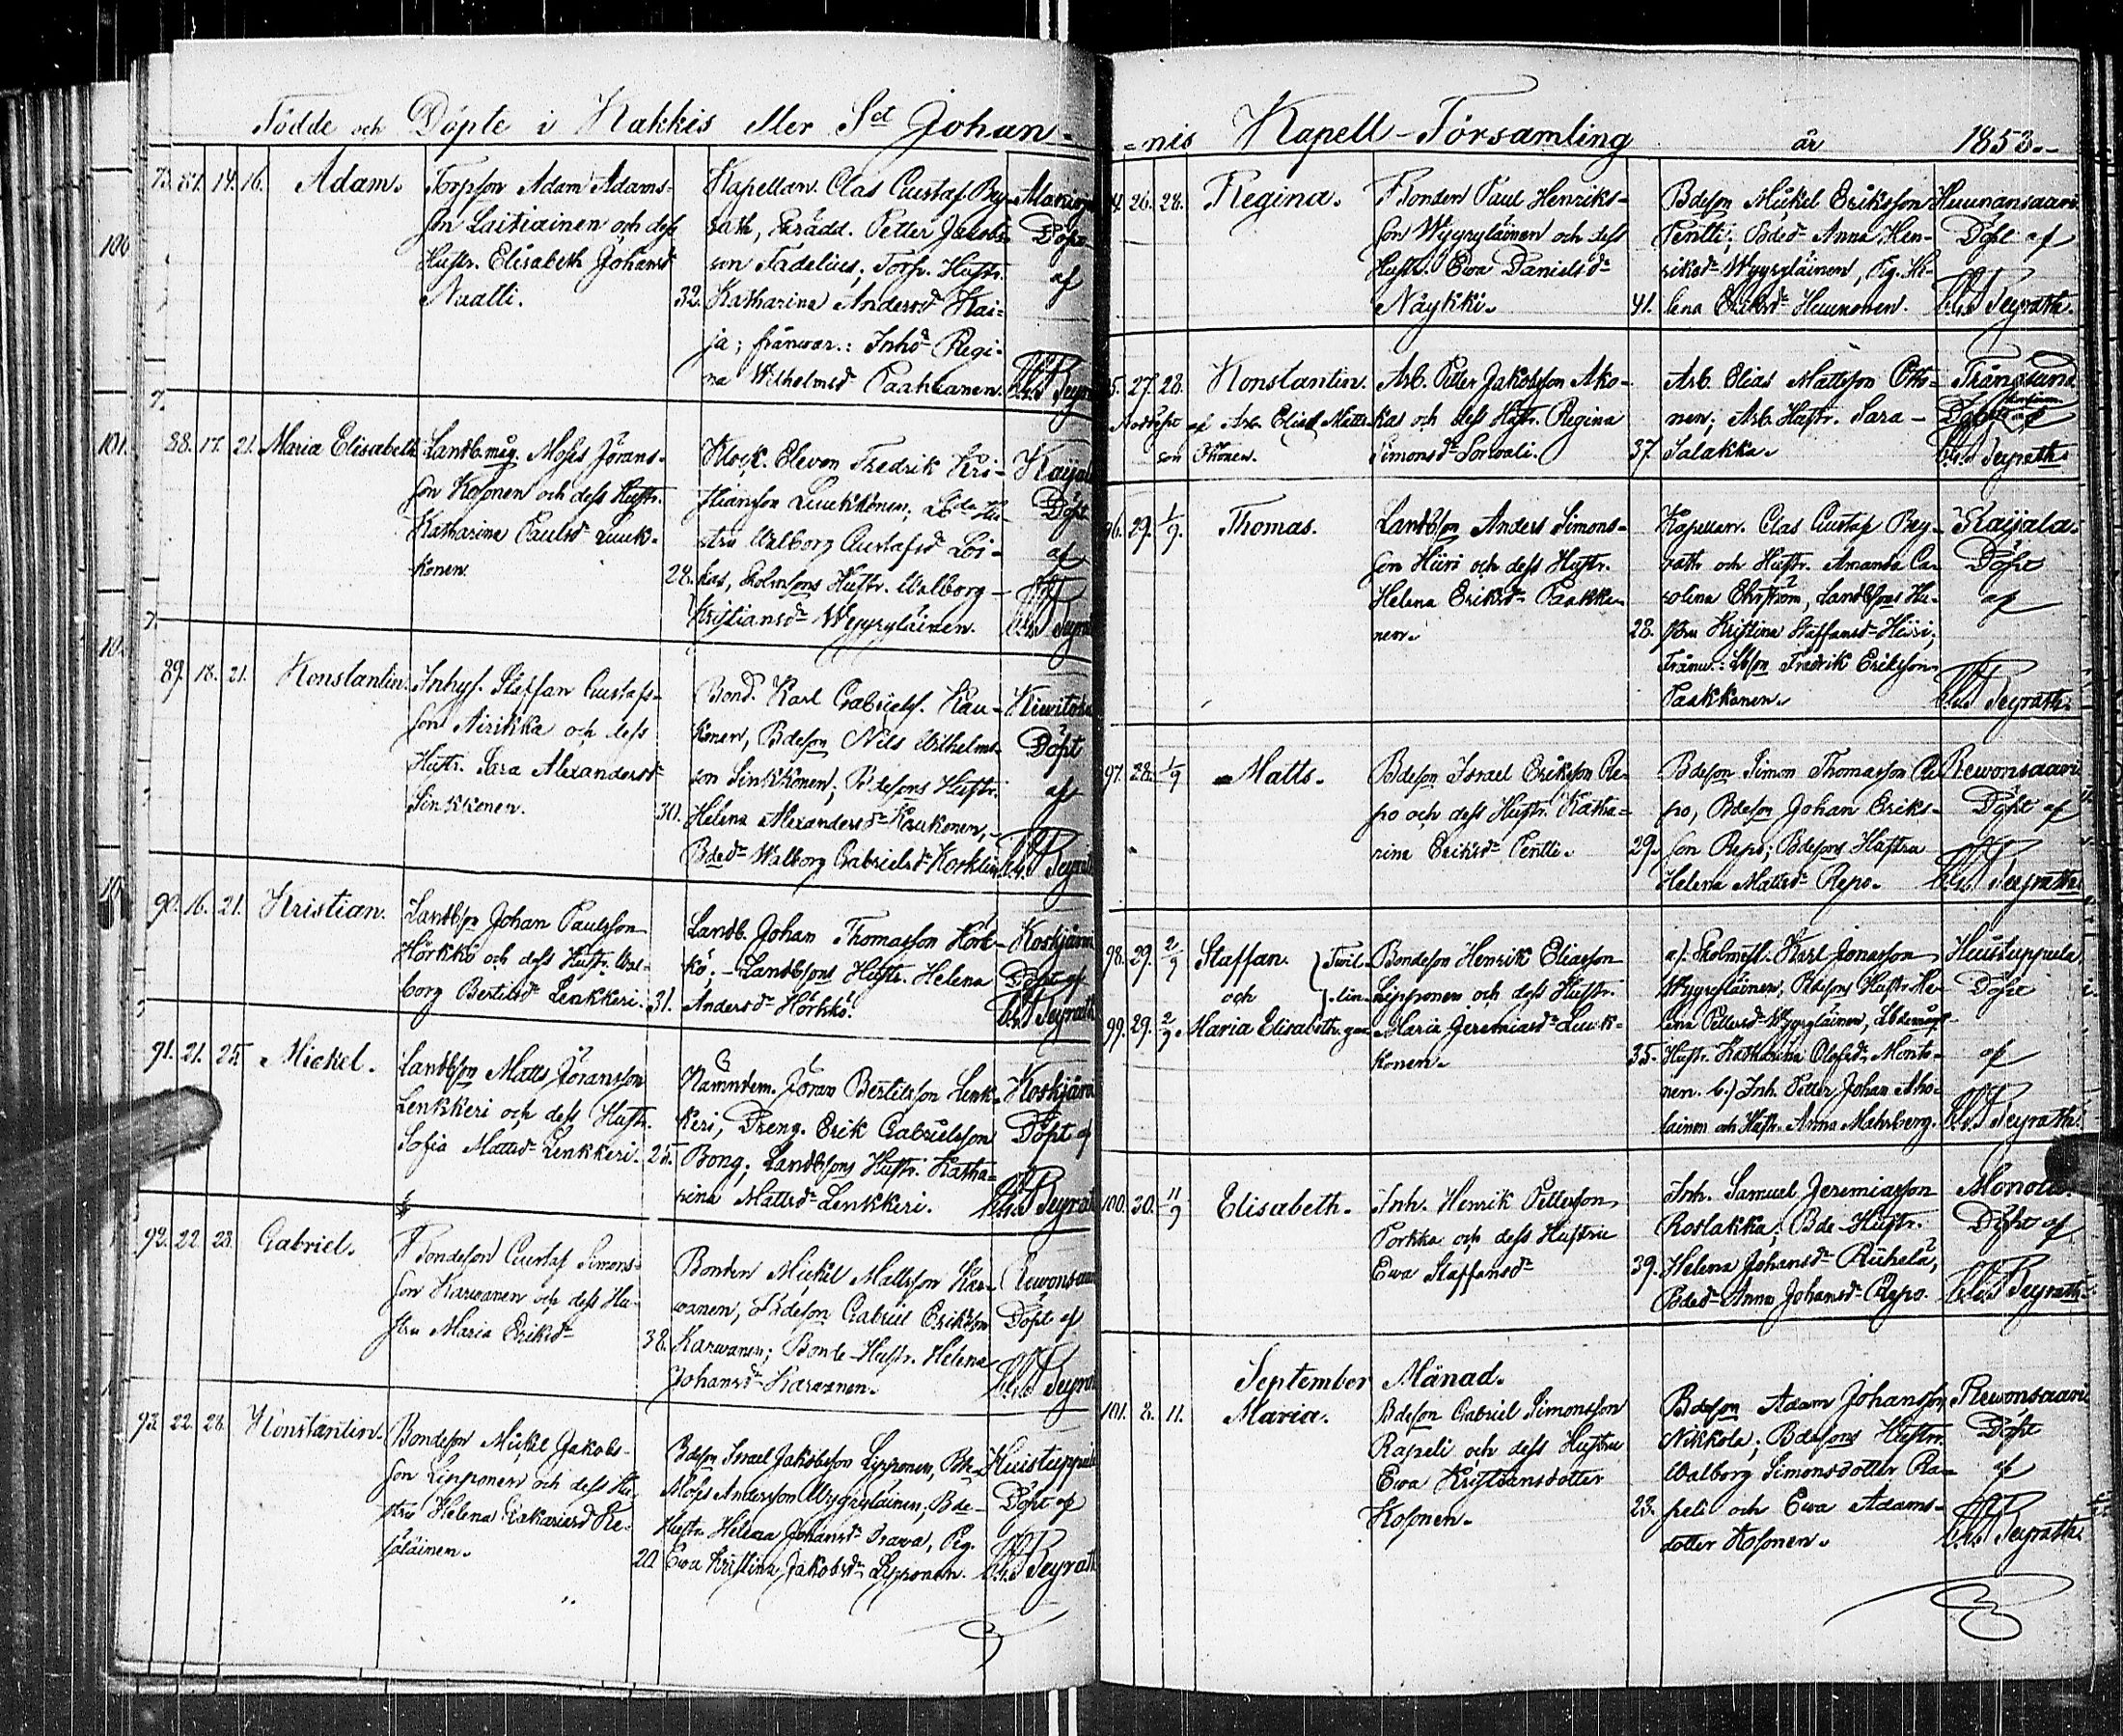 Födde och Döpte i Kakkis eller S:t Johan-
87. 14. 16. Adam.
Torpson Adam Adams-
son Laitiainen och dess
Hustr. Elisabeth Johansd
32.
Kapellan. Clas Gustaf Bey-
rath, Petter Jakobs-
son Fadelius; Torp. Hustr.
Katharina Andersd Kai-
ja; frånvar.: Inhd Regi-
na Wilhelmsd Paakkanen.
Döpt
af
88. 17. 21. Maria Elisabeth
Landb.måg. Moses Jörans-
son Kosonen och dess Hustr.
Katharina Paulsd Luuk-
konen.
28.
Klock. Eleven Fredrik Kri-
stiansson Luukkonen; Lbde Hu-
stru Walborg Gustafsd Loi-
kas, Skolmsons Hustr. Walborg
Kristiansd Wygryläinen.
Kaijala
Döpt
af
89. 18. 21. Konstantin.
Inhys. Staffan Gustafs-
son Airikka och dess
Hustr. Sara Alexandersd
Sinkkonen.
30.
Bond. Karl Gabriels. Kau-
konen, Bdeson Nils Wilhelms-
son Sinkkonen; Bdesons Hustr.
Helena Alexandersd Kaukonen,
Bded Walborg Gabrielsd
Döpt
af
90. 16. 21. Kristian.
Landbson Johan Paulsson
Hörkkö och dess Hustr. Wal-
borg Bertilsd Lenkkeri.
31.
Landb. Johan Thomasson Hörk-
kö; Landbsons Hustr. Helena
Andersd Hörkkö.
Koskjärvi
Döpt af
91. 21. 25. Mickel.
Landbson Matts Jöransson
Lenkkeri och dess Hustr.
Sofia Mattsd Lenkkeri.
25.
Nämndem. Jöran Bertilsson Lenk-
keri, Dreng. Erik Gabrielsson
Bong; Landbsons Hustr. Katha-
rina Mattsd Lenkkeri.
Koskjärvi
Döpt af
92. 22. 28. Gabriel.
Bondeson Gustaf Simons-
son Karwanen och dess Hu-
stru Maria Eriksd
38.
Bonden Mickel Mattsson Kar-
wanen, Bdeson Gabriel Eriksson
Karwanen; Bonde-Hustr. Helena
Johansd Karwanen.
Rewonsaari
Döpt af
93. 22. 28. Konstantin.
Bondeson Mickel Jakobs-
son Lipponen och dess Hu-
stru Helena Zakariasd Ke-
säläinen.
20.
Bdeson Israel Jakobsson Lipponen, Bde
Moses Andersson Wygryläinen; Bde-
Hustr. Helena Johansd Prawa, Pig.
Ewa Kristina Jakobsd Lipponen.
Huistuppula
Döpt af
Beyrath
-nis Kapell-Församling år 1853.
26. 28. Regina.
Bonden Paul Henriks-
son Wygryläinen och dess
Hustr. Ewa Danielsd
Näykki.
41.
Bdeson Mickel Eriksson
Pentti; Bded Anna Hen-
riksd Wygryläinen, Pig. He-
lena Eriksd Heunonen.
Hunnansaari
Döpt af
Beyrath.
95. 27. 28. Konstantin.
Nöddöpt af Arb. Elias Matts-
son Othonen.
Arb. Petter Jakobsson Ako-
kas och dess Hustr. Regina
Simonsd Sorwali.
37.
Arb. Elias Mattsson Otho-
nen; Arb. Hustr. Sara
Salakka.
Trångsund
Beyrath.
96. 29. 1/9. Thomas.
Landbson Anders Simons-
son Hiiri och dess Hustr.
Helena Eriksd Paakka-
nen.
28.
Kapellan. Clas Gustaf Bey-
rath och Hustr. Amanda Ca-
rolina Ehrström, Landbsons Hu-
stru Kristina Staffansd Hiiri;
Frånv.: Lbson Fredrik Eriksson
Paakkanen.
Kaijala.
Döpt
af
Beyrath.
97. 28. 1/9 Matts.
Bdeson Israel Eriksson Re-
po och dess Hustr. Katha-
rina Eriksd Pentti.
29.
Bdeson Simon Thomasson Re-
po, Bdeson Johan Eriks-
son Repo; Bdesons Hustru
Helena Mattsd Repo.
Rewonsaari
Döpt af
Beyrath.
98. 29. 2/9 Staffan. } Twil-
och } lin-
99. 29. 2/9. Maria Elisabeth. gar
Bondeson Henrik Eliasson
Lipponen och dess Hustr.
Maria Jeremiasd Luuk-
konen.
35.
a). Skolmst. Karl Jonasson
Wygryläinen, Bdesons Hustr. He-
lena Pettersd Wygryläinen, Lbdemågs
Hustr. Katharina Olofsd Monto-
nen. b.) Inh. Petter Johan Aho-
lainen och Hustr. Anna Mahrberg.
Huistuppula
Döpt
af
Beyrath.
100. 30. 11/9 Elisabeth.
Inh. Henrik Pettersson
Porkka och dess Hustru
Ewa Staffansd
39.
Inh. Samuel Jeremiasson
Roslakka; Bde-Hustr.
Helena Johansd Riihelä,
Bded Anna Johansd Repo.
Monola.
Döpt af
Beyrath.
September Månad.
101. 8. 11. Maria.
Bdeson Gabriel Simonsson
Rapeli och dess Hustru
Ewa Kristiansdotter
Kosonen.
23.
Bdeson Adam Johansson
Nikkola; Bdesons Hustr.
Walborg Simonsdotter Ra-
peli och Ewa Adams-
dotter Kosonen.
Rewonsaari
Döpt
af
Beyrath.